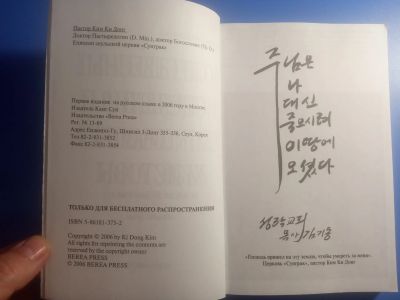 Пастор Ким Ки Донг
Доктор Пасторологии (D. Min.), доктор Богословия (Th. D.)
Епископ сеульской церкви «Сунграк»
Первое издание на русском языке в 2006 году в Москве,
Издатель Канг Сун
Издательство «Berea Press»
Рег. № 13-89
Tel 82-2-831-3852
Fax 82-2-831-3854
ТОЛЬКО ДЛЯ БЕСПЛАТНОГО РАСПРОСТРАНЕНИЯ
ISBN 5-86181-373-2
Copyright © 2006 by Ki Dong Kim
All rights reserved
Reproducing the contents are
prohibited without permission
of the copyright owner
BEREA PRESS
© 2006 BEREA PRESS
주님은
나
대신
죽으시려
이땅에
오셨다
성락교회
목사 김기동
«Господь пришел на эту землю, чтобы умереть за меня».
Церковь «Сунграк», пастор Ким Ки Донг